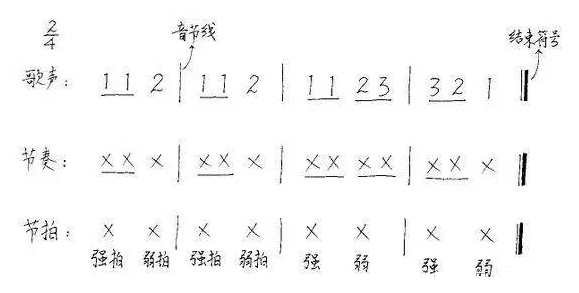 2/4
音节线
结束符号
歌声: 1 1 2 | 1 1 2 | 1 1 2 3 | 3 2 1 ‖
节奏: × × × | × × × | × × × × | × × × ‖
节拍: × × | × × | × × | × × ‖
强拍 弱拍 强拍 弱拍 强 弱 强 弱